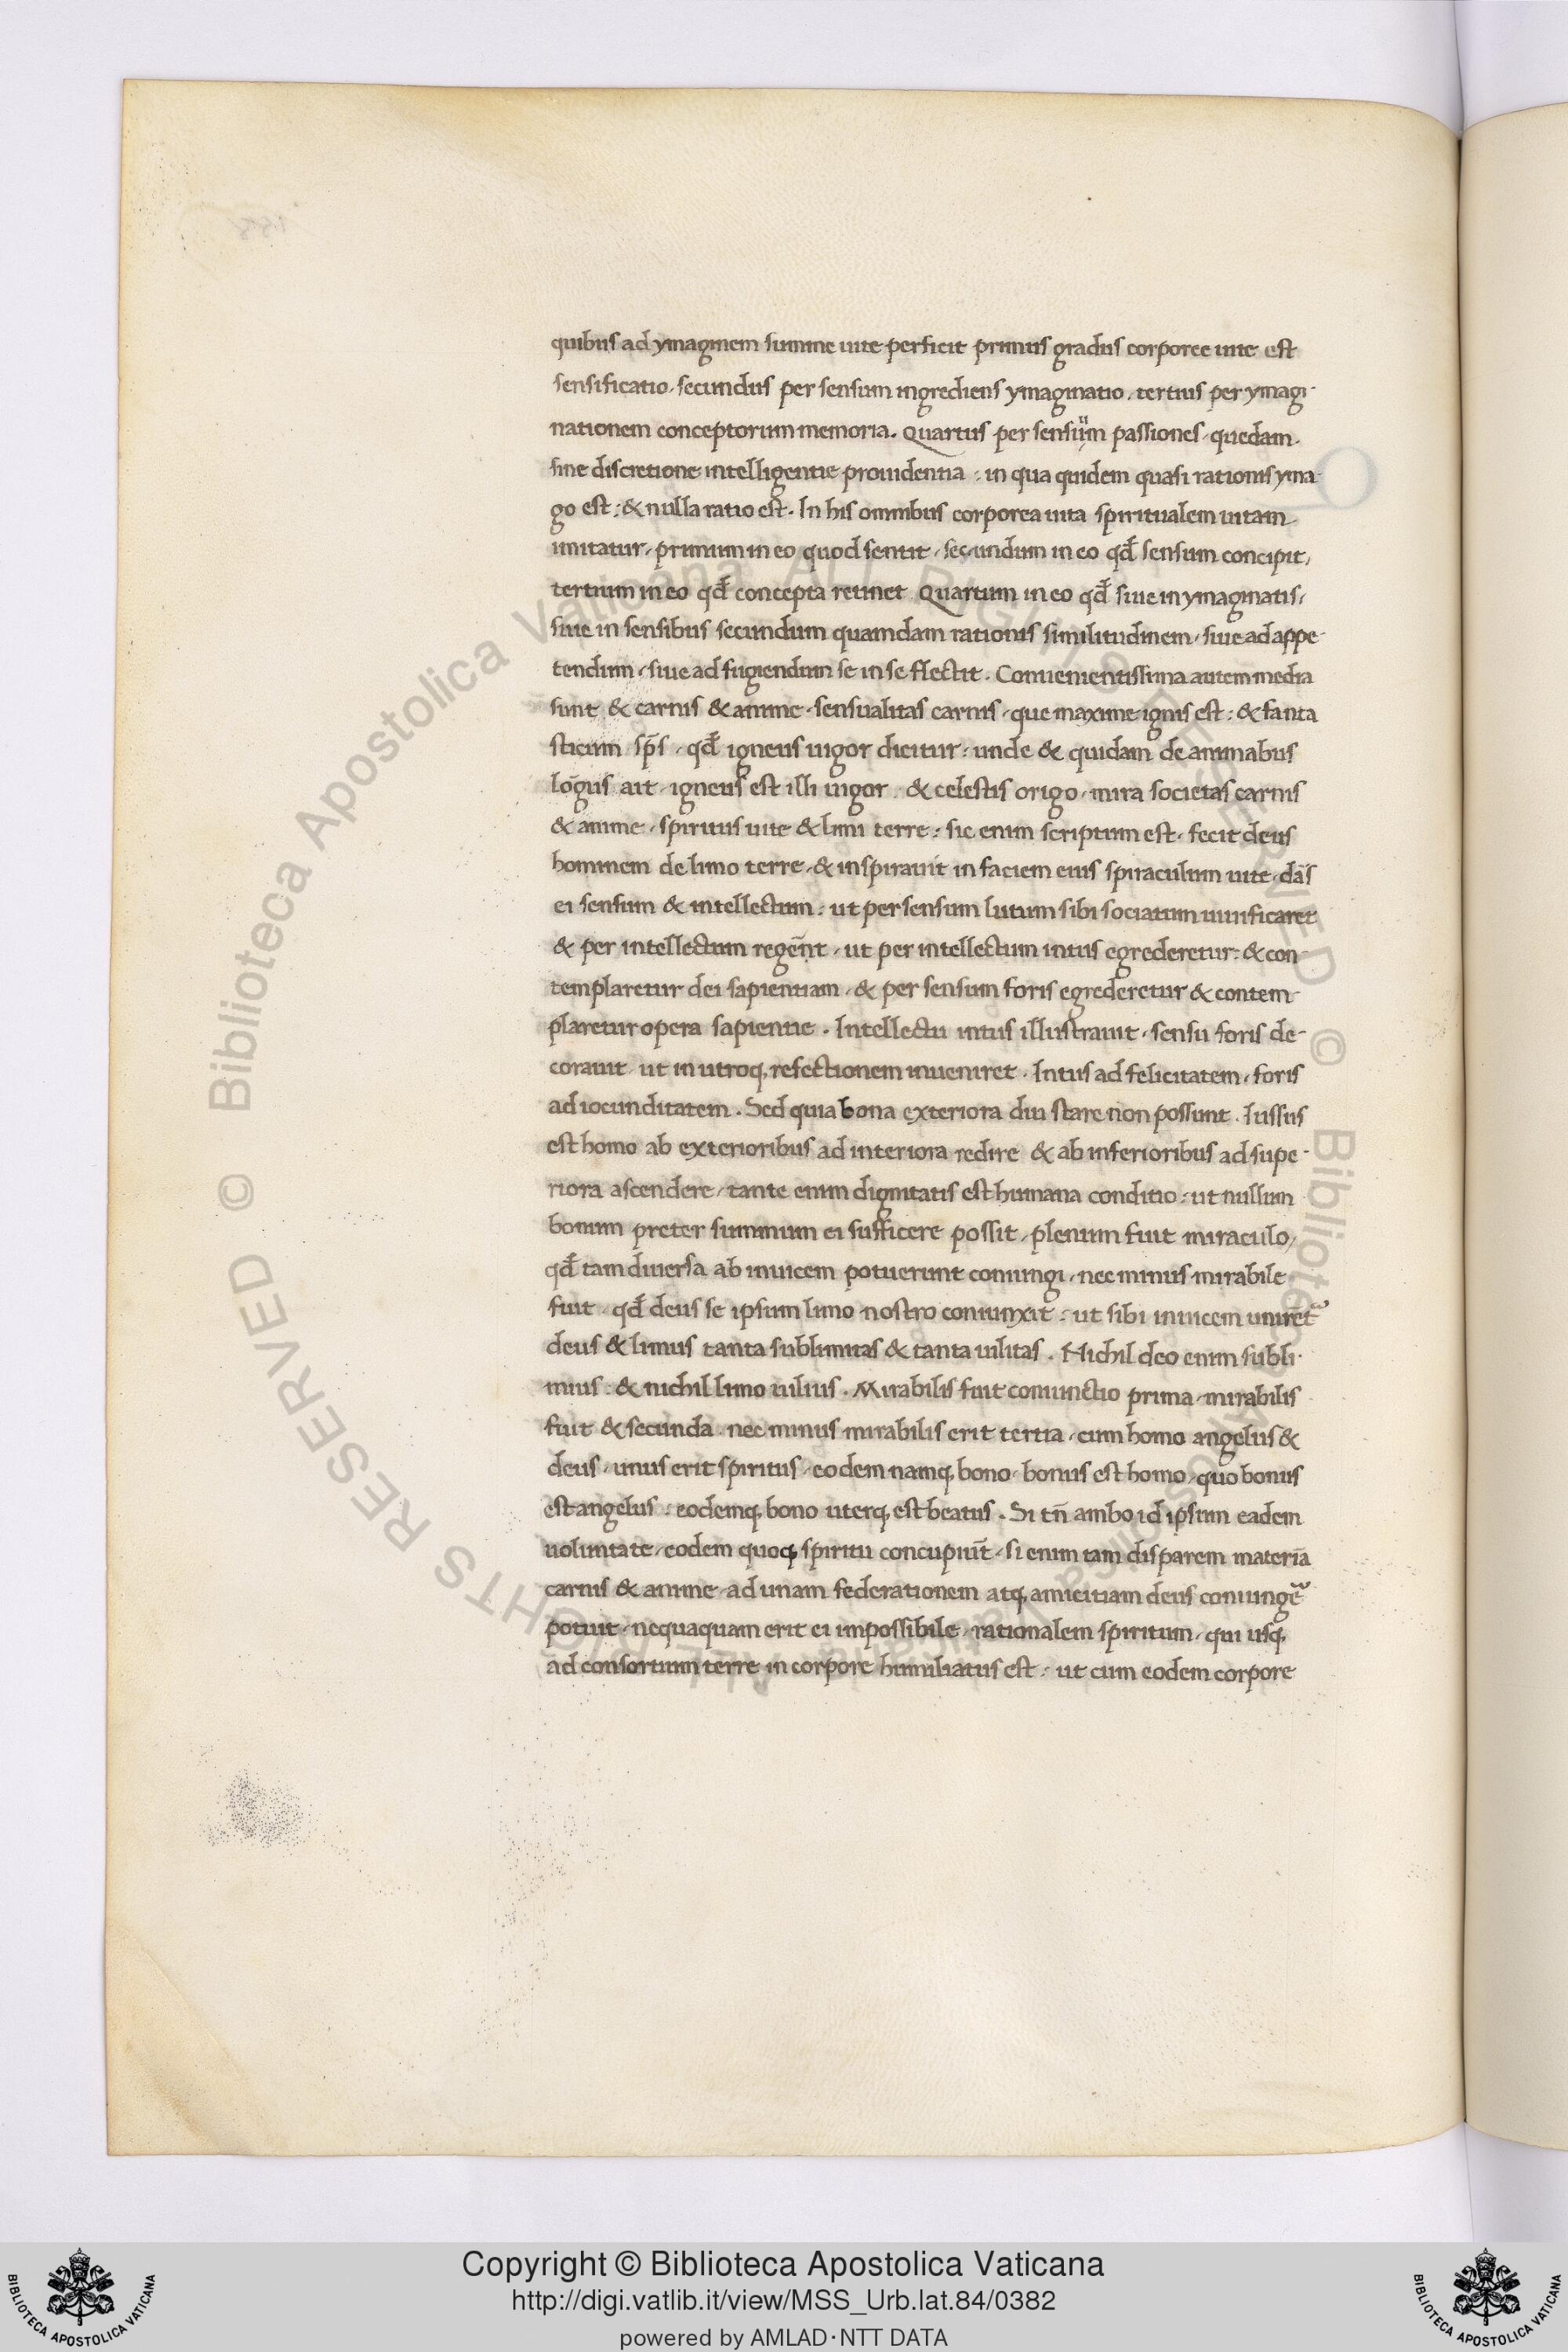 quibus ad ymaginem summe uite perficit primus gradus corporee uite est
sensificatio, secundus per sensum ingrediens ymaginatio, tertius per ymagi-
nationem conceptorum memoria. Quartus per sensuum passiones, quedam
sine discretione intelligentie prouidentia : in qua quidem quasi rationis yma-
go est : & nulla ratio est. In his omnibus corporea uita spiritualem uitam
imitatur, primum in eo quod sentit, secundum in eo qd̄ sensum concipit,
tertium in eo qd̄ concepta retinet. Quartum in eo qd̄ siue in ymaginatis,
siue in sensibus secundum quamdam rationis similitudinem, siue ad appe-
tendum, siue ad fugiendum se in se flectit. Conuenientissima autem media
sunt & carnis & anime, sensualitas carnis, que maxime ignis est : & fanta
sticum sp̄s, qd̄ igneus uigor dicitur : unde & quidam de animabus
lōgus ait, igneus est illi uigor, & celestis origo, mira societas carnis
& anime, spiritus uite & limi terre : sic enim scriptum est, fecit deus
hominem de limo terre, & inspirauit in faciem eius spiraculum uite, dās
ei sensum & intellectum : ut per sensum lutum sibi sociatum uiuificaret
& per intellectum regēnt, ut per intellectum intus egrederetur : & con-
templaretur dei sapientiam, & per sensum foris egrederetur & contem-
plaretur opera sapientie. Intellectu intus illustrauit, sensu foris de-
corauit, ut in utroq, refectionem inueniret. Intus ad felicitatem, foris
ad iocunditatem. Sed quia bona exteriora diu stare non possunt. Iussus
est homo ab exterioribus ad interiora redire & ab inferioribus ad supe-
riora ascendere, tante enim dignitatis est humana conditio : ut nullum
bonum preter summum ei sufficere possit, plenum fuit miraculo,
qd̄ tam diuersa ab inuicem potuerunt coniungi, nec minus mirabile
fuit, qd̄ deus se ipsum limo nostro coniunxit : ut sibi inuicem unirēt᷑
deus & limus tanta sublimitas & tanta uilitas. Nichil deo enim subli-
mius : & nichil limo uilius. Mirabilis fuit coniunctio prima, mirabilis
fuit & secunda, nec minus mirabilis erit tertia, cum homo angelus &
deus, unus erit spiritus, eodem namq, bono, bonus est homo, quo bonus
est angelus : eodemq, bono uterq, est beatus. Si tn̄ ambo id ipsum eadem
uoluntate, eodem quoq, spiritu concupiūt, si enim tam disparem materiā
carnis & anime, ad unam federationem atq, amicitiam deus coniungē
potuit, nequaquam erit ei impossibile, rationalem spiritum, qui usq,
ad consortium terre in corpore humiliatus est : ut cum eodem corpore
Copyright © Biblioteca Apostolica Vaticana
http://digi.vatlib.it/view/MSS_Urb.lat.84/0382
powered by AMLAD·NTT DATA
BIBLIOTECA APOSTOLICA VATICANA
BIBLIOTECA APOSTOLICA VATICANA